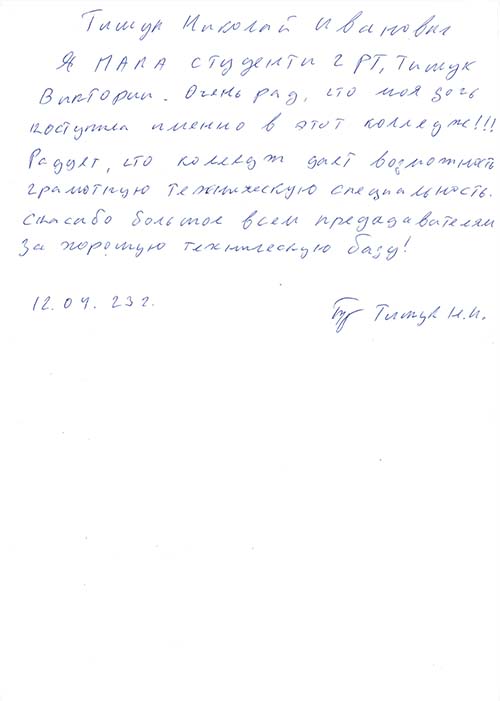 Тищук Николай Иванович
Я ПАПА студентки 2 РТ, Тищук
Виктории. Очень рад, что моя дочь
поступила именно в этот колледж!!!
Радует, что колледж дает возможность
грамотную техническую специальность.
Спасибо большое всем предадавателям
За хорошую техническую базу!
12.04.23г.
Тищук Н.И.